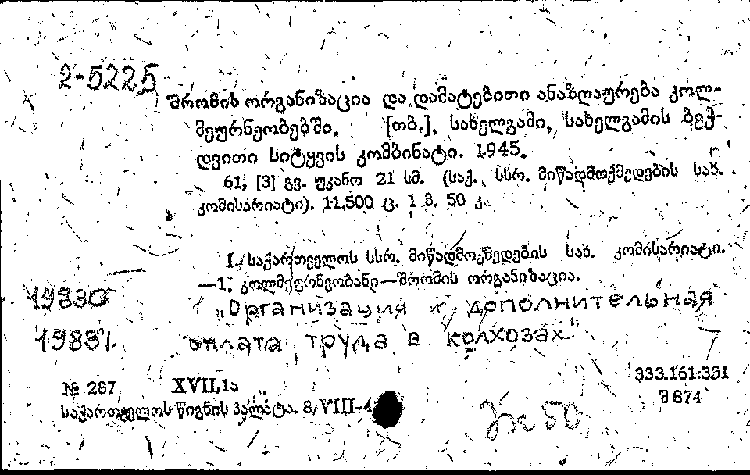 2-5225
შრომის ორგანიზაცია და დამატებითი ანაზღაურება კოლ-
მეურნეობებში. [თბ.], სახელგამი, სახელგამის ბეჭ-
დვითი სიტყვის კომბინატი. 1945.
61, [3] გვ. უკანო 21 სმ. (საქ. სსრ. მიწადმოქმედების სახ.
კომისარიატი). 11.500 ც. 1 მ. 50 კ.
I. საქართველოს სსრ. მიწადმოქმედების სახ. კომისარიატი.
—1. კოლმეურნეობანი—შრომის ორგანიზაცია.
19830 „Организация и дополнительная
19831. оплата труда в колхозах"
№ 287 XVII,1ა 333.161:331
საქართველოს წიგნის პალატა. 8/VIII-4 შ 674